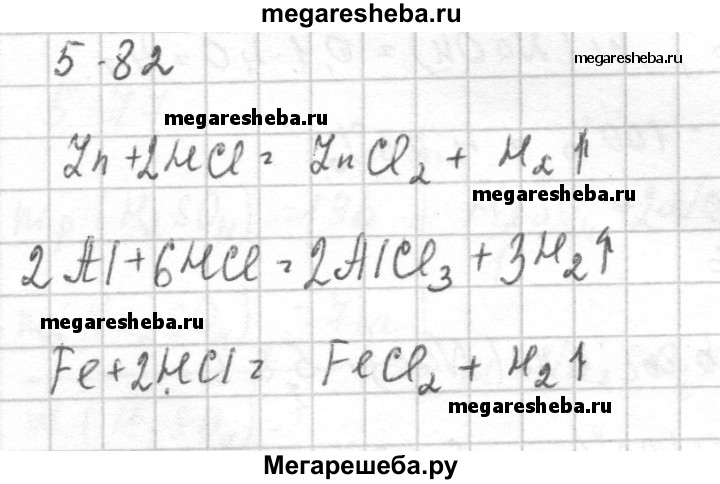 megaresheba.ru
5-82
megaresheba.ru
megaresheba.ru
Zn + 2HCl = ZnCl₂ + H₂↑
megaresheba.ru
2Al + 6HCl = 2AlCl₃ + 3H₂↑
megaresheba.ru
Fe + 2HCl = FeCl₂ + H₂↑
megaresheba.ru
Мегарешеба.ру